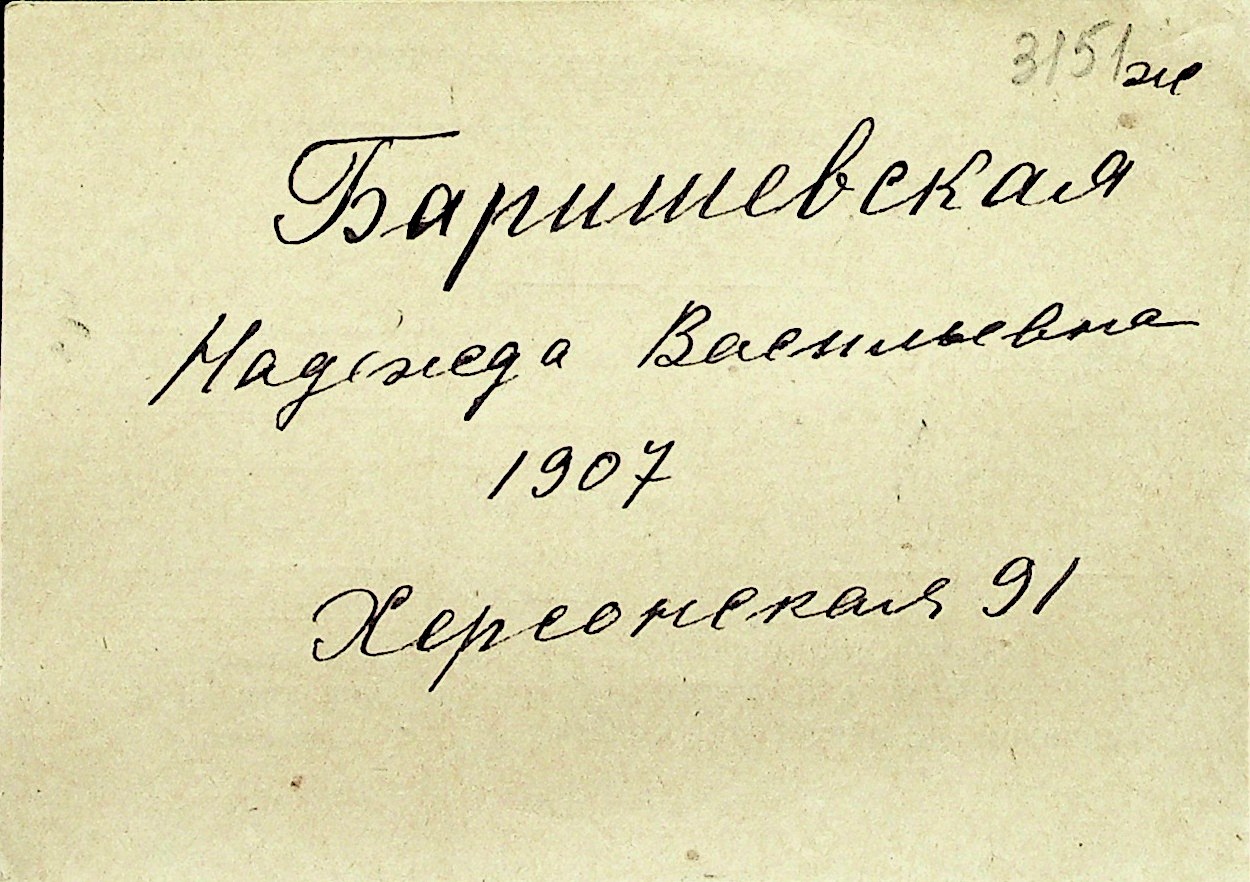 3151 ж
Баришевская
Надежда Васильевна
1907
Херсонская 91